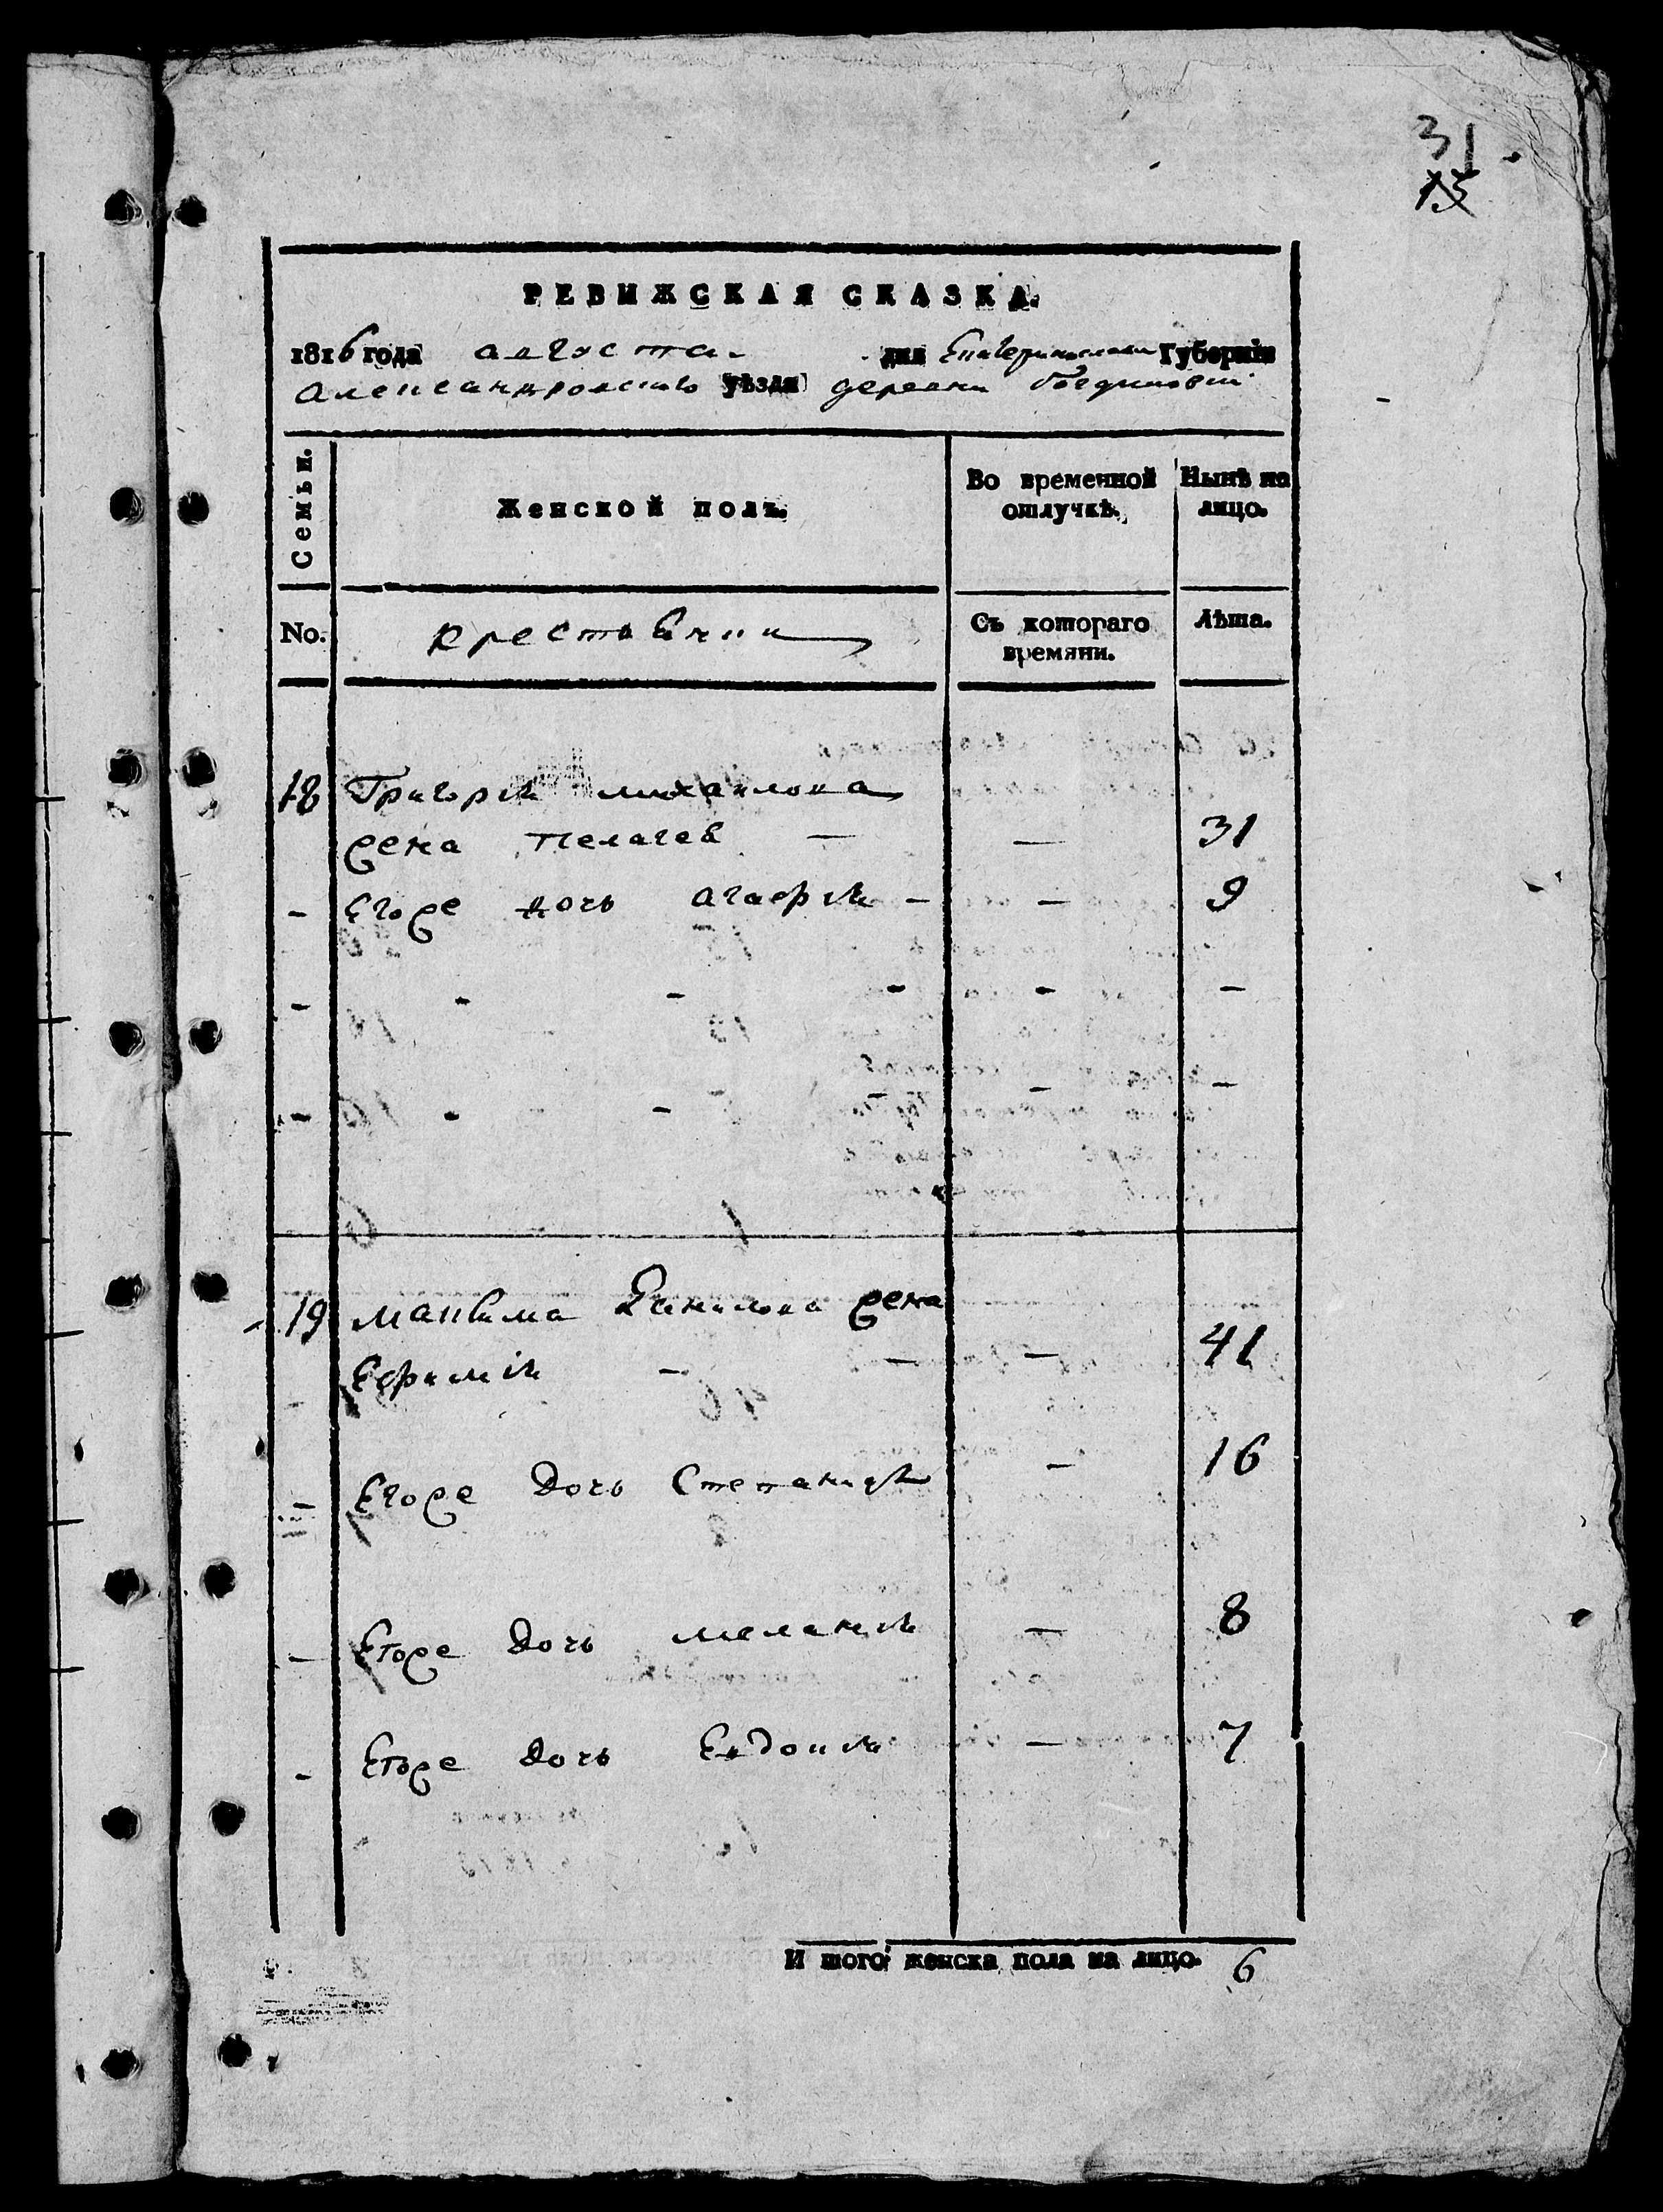 31
15
РЕВИЖСКАЯ СКАЗКА.
1816 года августа дня Екатеринославской Губернїи
Александровского уѣзда деревни
Семьи. Женской полъ. Во временной отлучкѣ. Нынѣ на лицо.
No. крестьянки Съ котораго времяни. Лѣта.
18 Григорія михаилова
жена Пелагея — — 31
- Егоже дочь агафия - — 9
- - - - - -
- - - - - -
19 максима Данилова жена
Ефимія - — — 41
- Егоже Дочь Степанида - 16
- Егоже Дочь мелания — 8
- Егоже Дочь Евдокия — 7
И того женска пола на лицо. 6